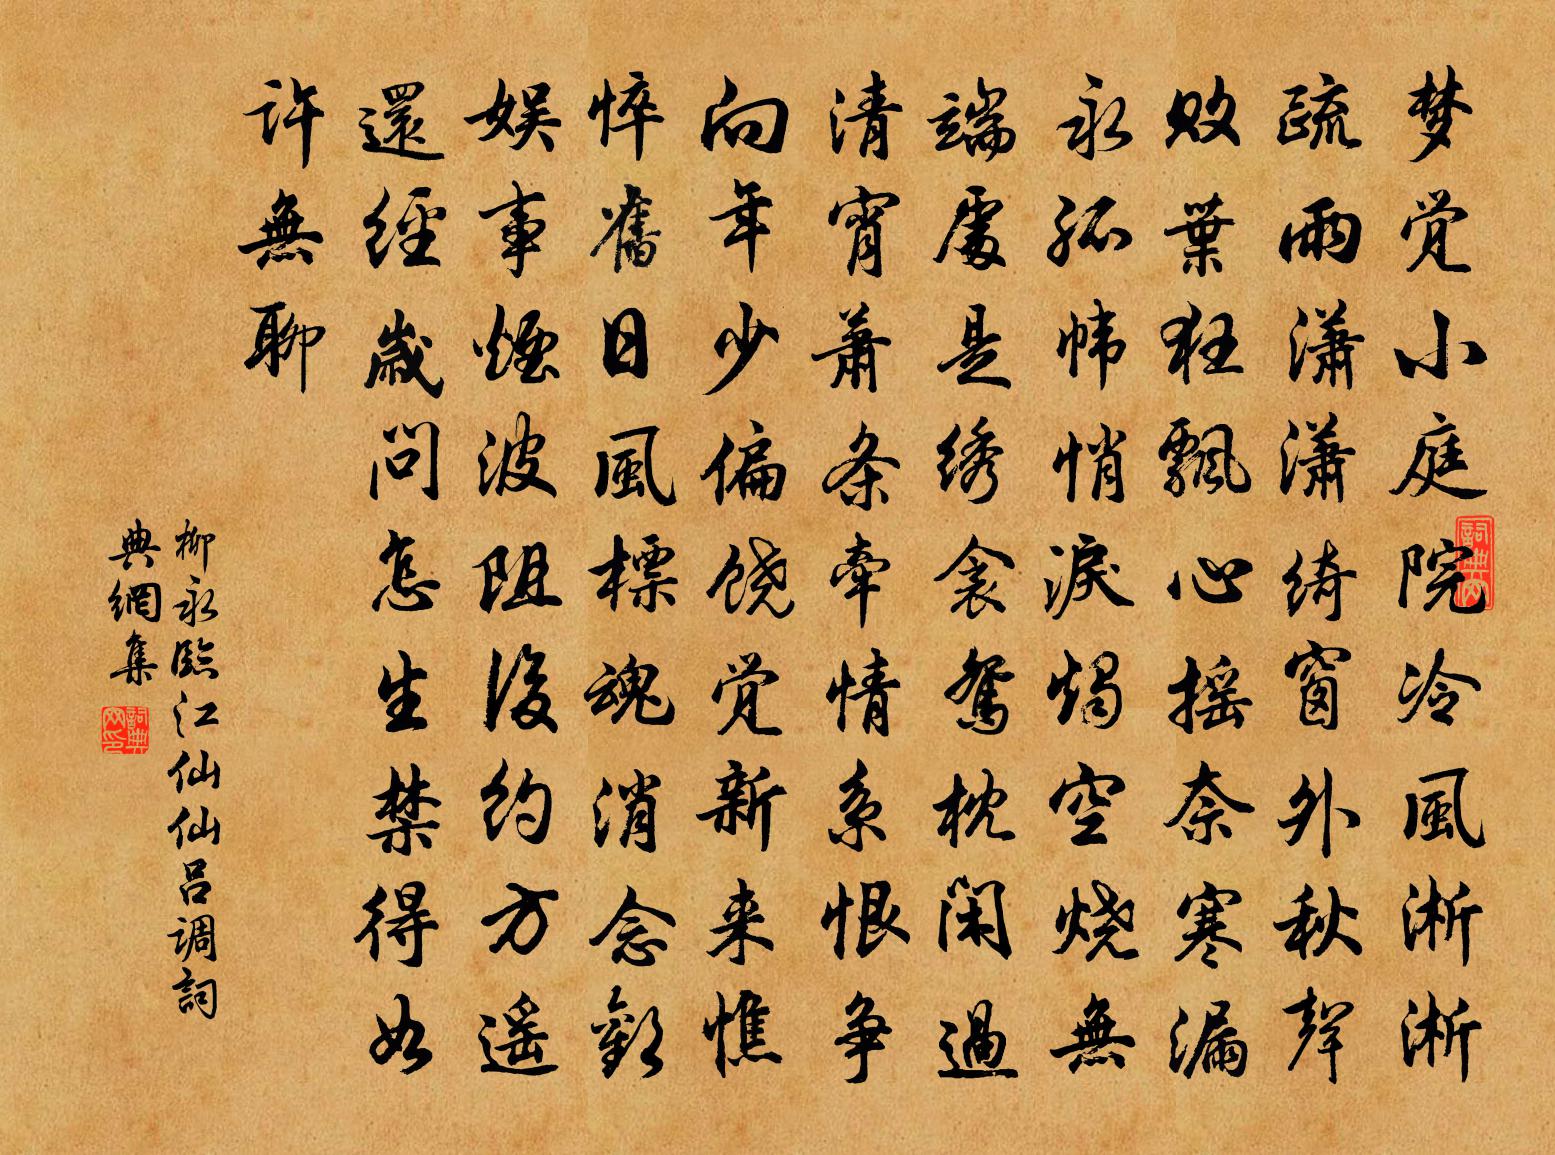 梦觉小庭院冷風淅淅
疏雨潇潇绮窗外秋聲
败葉狂飘心摇奈寒漏
永孤帏悄淚燭空烧無
端處是绣衾鸳枕闲過
清宵萧条牵情系恨争
向年少偏饶觉新来憔
悴舊日風標魂消念歡
娱事煙波阻後约方遥
還經歲问怎生禁得如
許無聊
柳永臨江仙仙吕调詞
典網集
詞典网
詞典网印